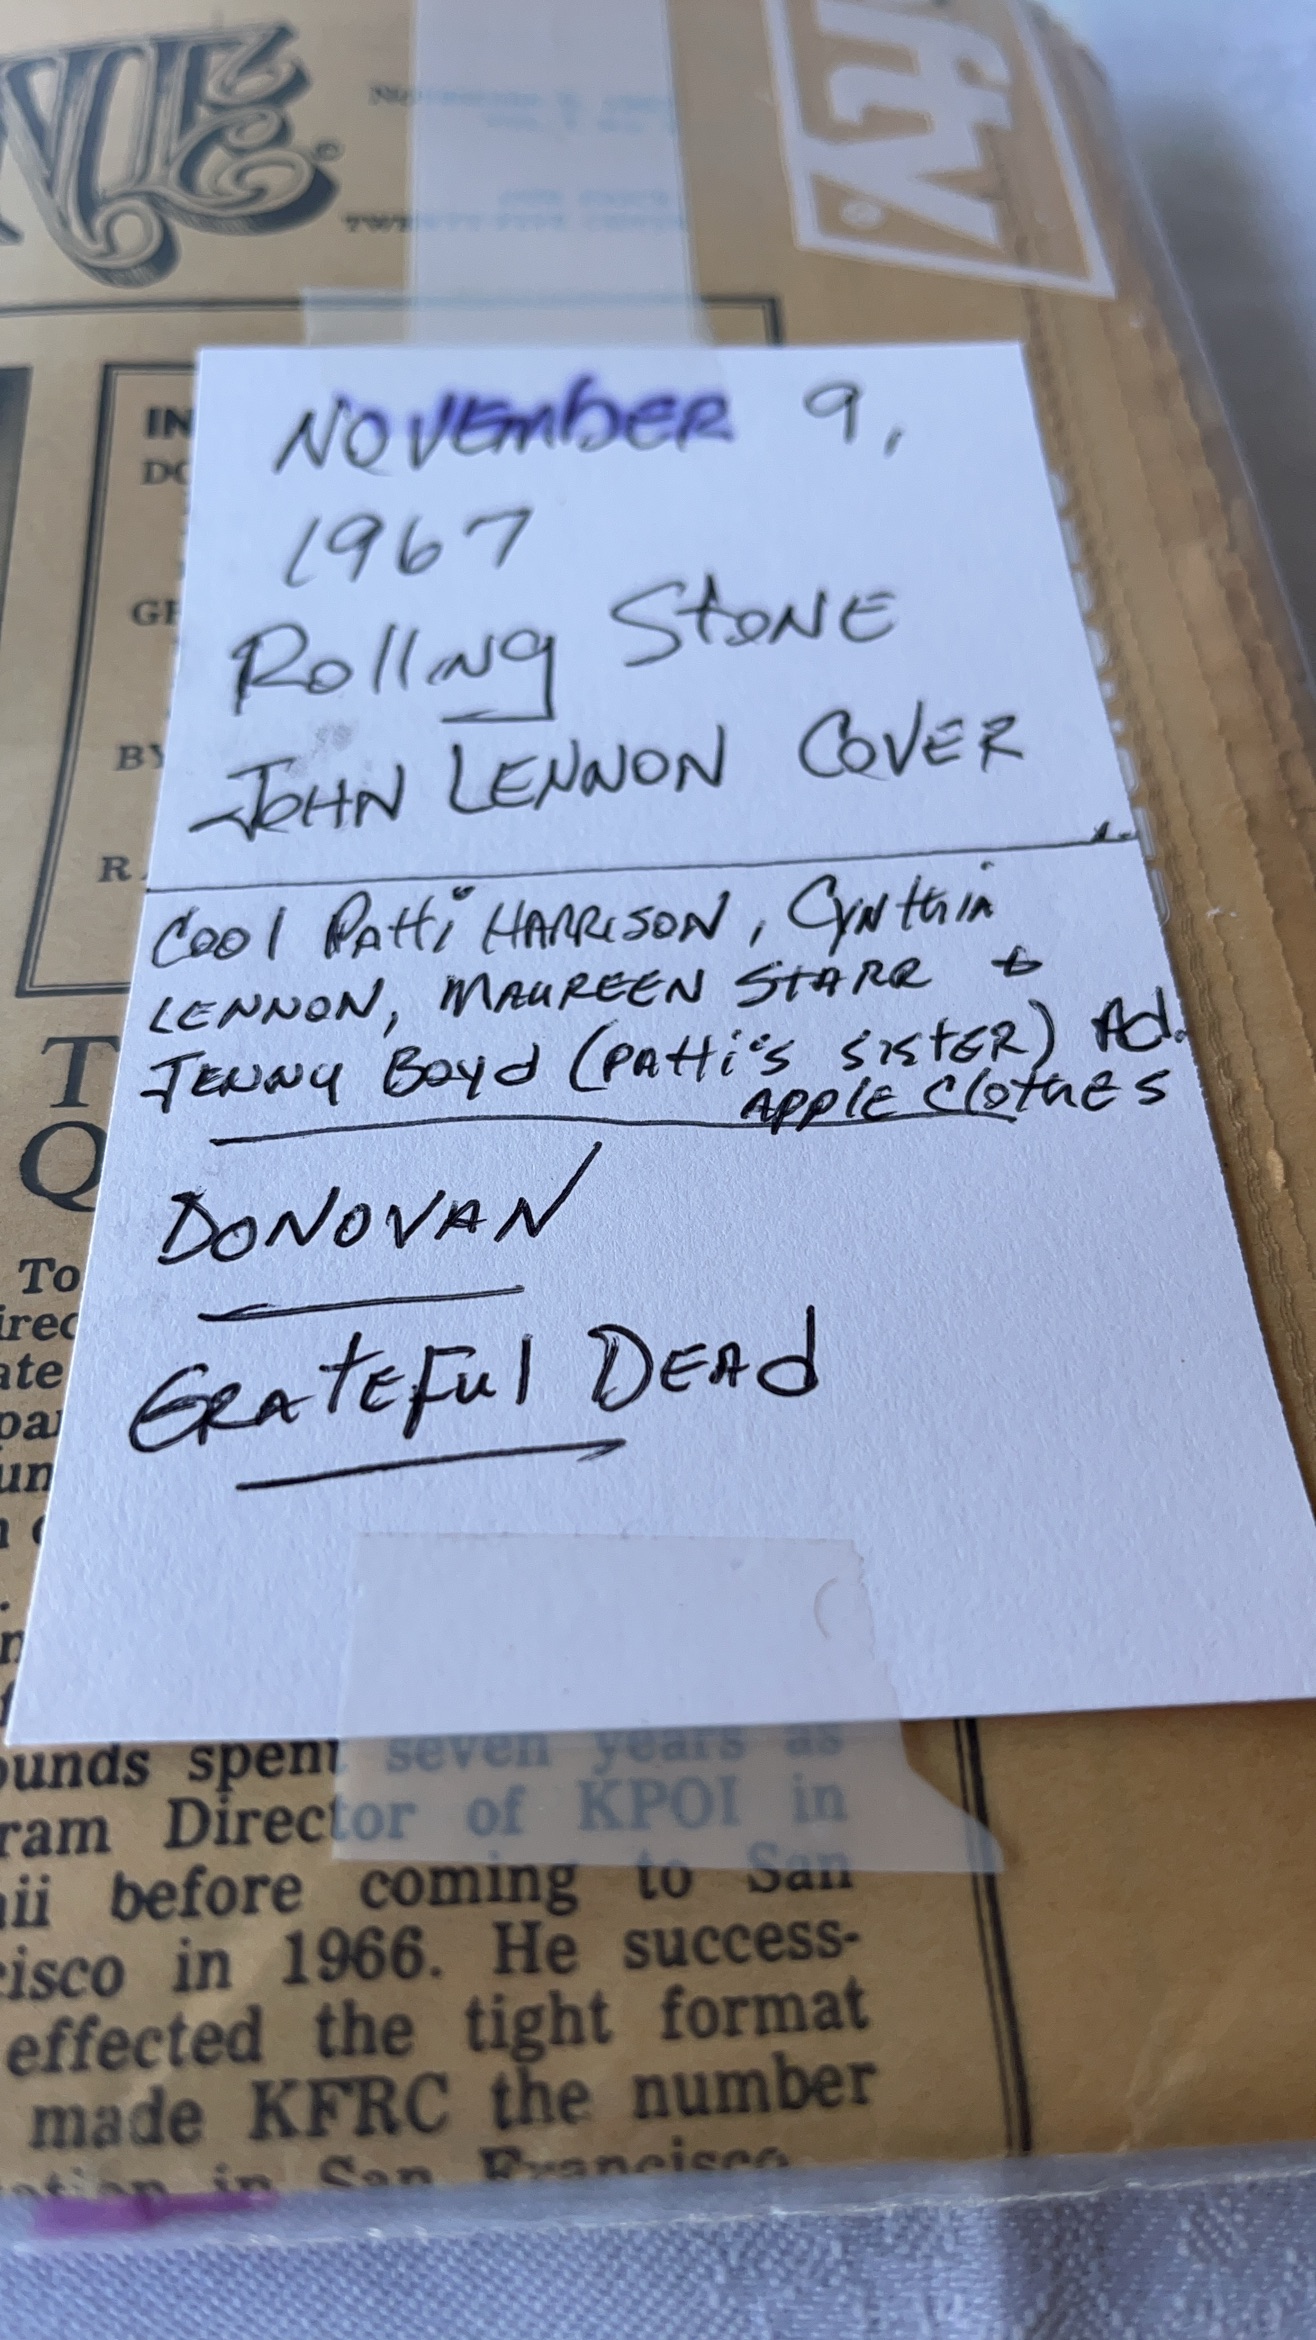 NE©
TWENTY FIVE CENTS
fty®
IN
DO
GE
BY
R
NOVEMBER 9,
1967
Rolling STONE
JOHN LENNON COVER
Cool Patti HARRISON, Cynthia
LENNON, MAUREEN STARR +
JENNY Boyd (PATTi's SISTER) Ad.
APPLE ClothES
DONOVAN
GRATEFul DEAd
T
Q
To
irec
ate
pa
un
ounds spent seven years as
ram Director of KPOI in
ii before coming to San
cisco in 1966. He success-
effected the tight format
made KFRC the number
ation in San Francisco